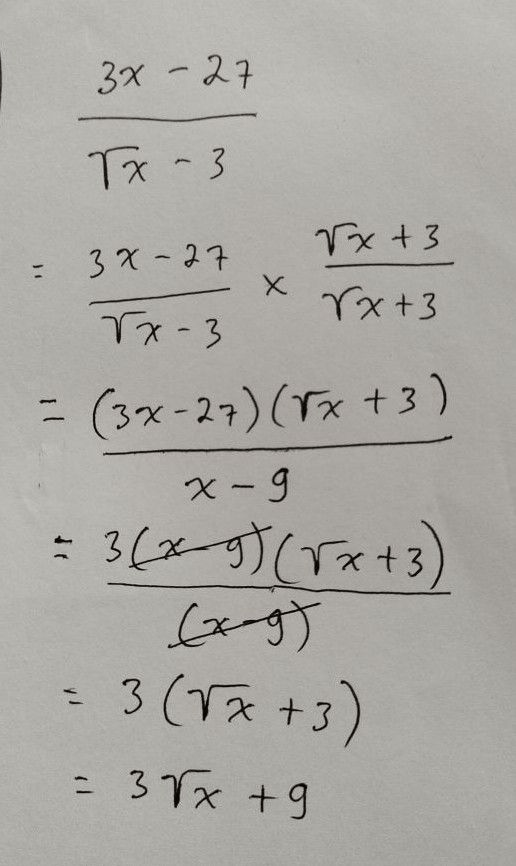 3x - 27
√x - 3
= 3x - 27 × √x + 3
√x - 3 √x + 3
= (3x - 27)(√x + 3)
x - 9
= 3(x - 9)(√x + 3)
(x - 9)
= 3(√x + 3)
= 3√x + 9